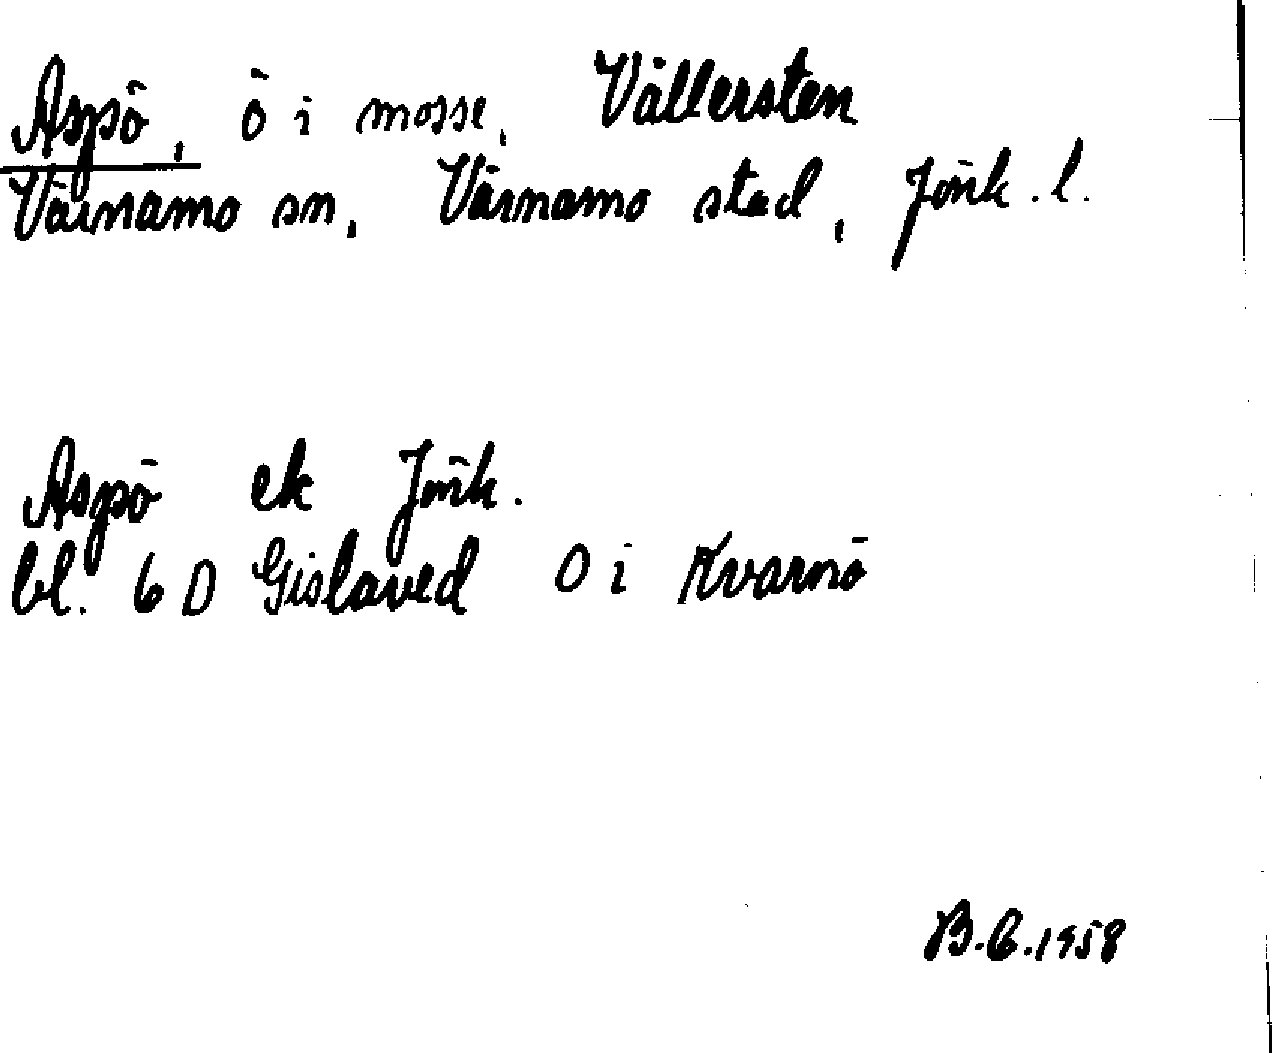 Aspö, ö i mosse, Vällersten
Värnamo sn, Värnamo stad, Jönk.l.
Aspö ek Jönk.
bl. 6 D Gislaved O i Kvarnö
B.G.1958